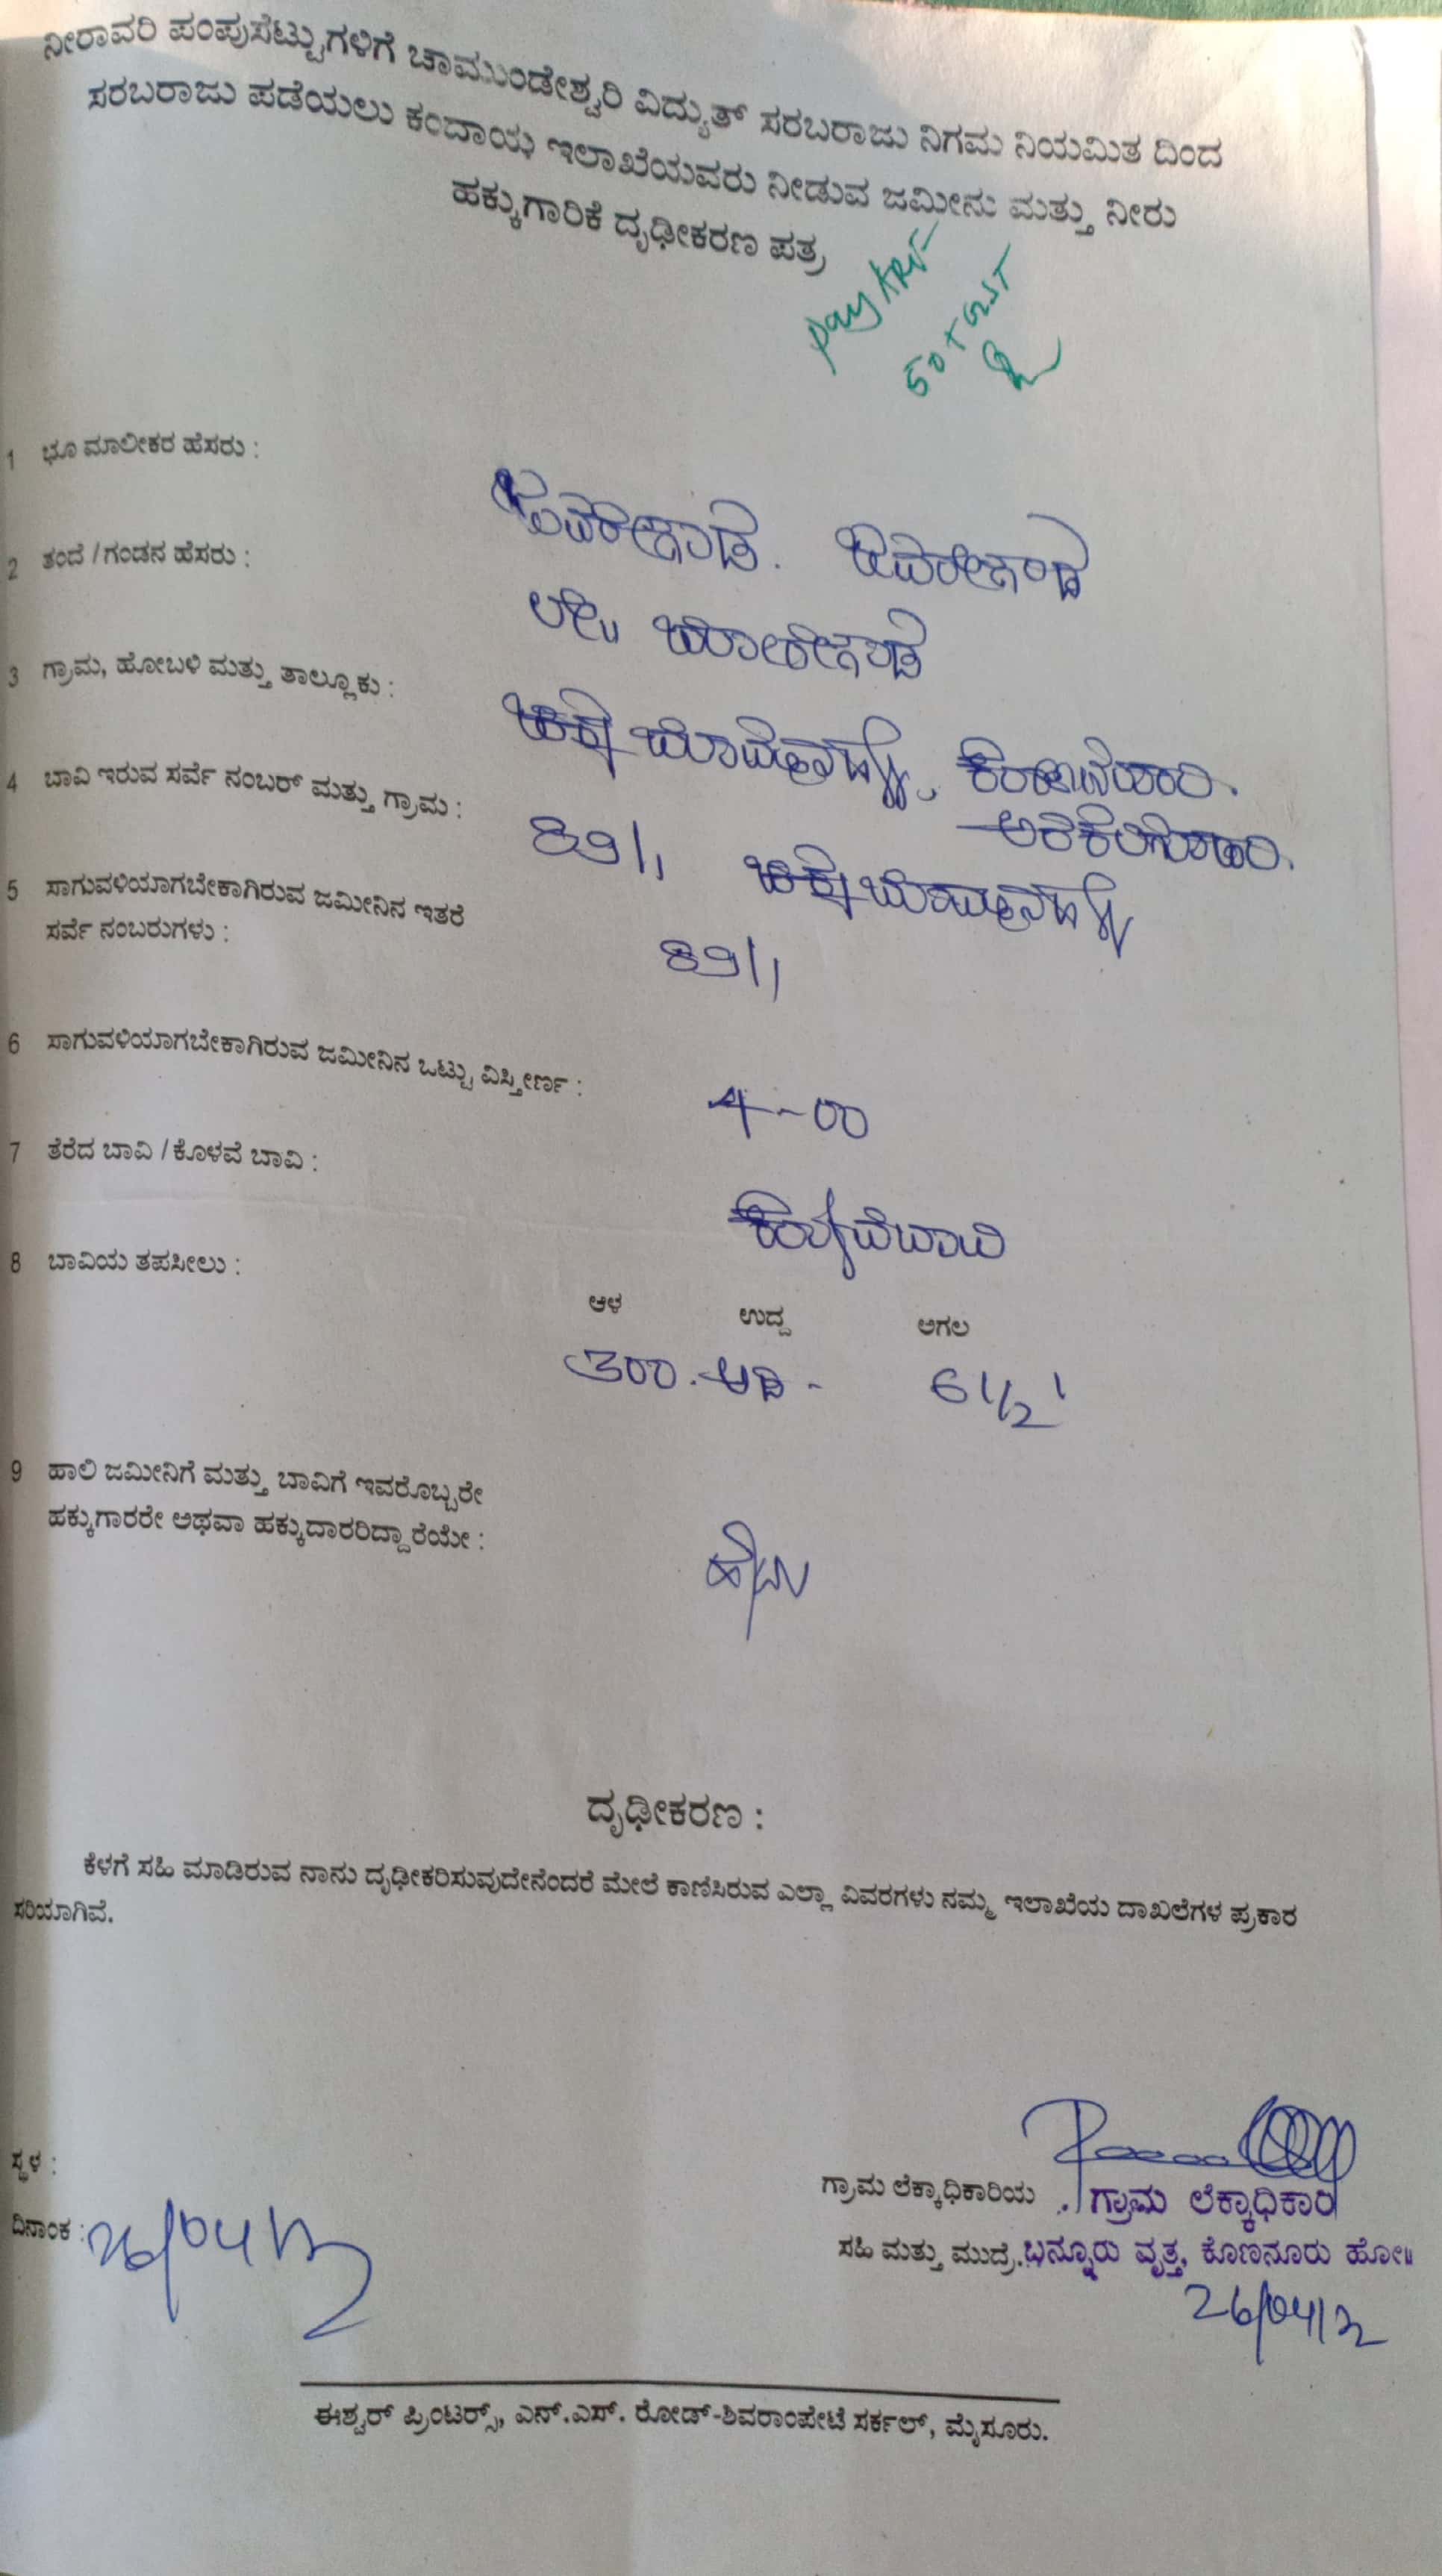 ನೀರಾವರಿ ಪಂಪುಸೆಟ್ಟುಗಳಿಗೆ ಚಾಮುಂಡೇಶ್ವರಿ ವಿದ್ಯುತ್ ಸರಬರಾಜು ನಿಗಮ ನಿಯಮಿತ ದಿಂದ
ಸರಬರಾಜು ಪಡೆಯಲು ಕಂದಾಯ ಇಲಾಖೆಯವರು ನೀಡುವ ಜಮೀನು ಮತ್ತು ನೀರು
ಹಕ್ಕುಗಾರಿಕೆ ದೃಢೀಕರಣ ಪತ್ರ
pay ARF
50 + GST
1 ಭೂ ಮಾಲೀಕರ ಹೆಸರು :
2 ತಂದೆ / ಗಂಡನ ಹೆಸರು :
3 ಗ್ರಾಮ, ಹೋಬಳಿ ಮತ್ತು ತಾಲ್ಲೂಕು :
4 ಬಾವಿ ಇರುವ ಸರ್ವೆ ನಂಬರ್ ಮತ್ತು ಗ್ರಾಮ : 89/1
5 ಸಾಗುವಳಿಯಾಗಬೇಕಾಗಿರುವ ಜಮೀನಿನ ಇತರೆ
ಸರ್ವೆ ನಂಬರುಗಳು : 89/1
6 ಸಾಗುವಳಿಯಾಗಬೇಕಾಗಿರುವ ಜಮೀನಿನ ಒಟ್ಟು ವಿಸ್ತೀರ್ಣ : 4-00
7 ತೆರೆದ ಬಾವಿ / ಕೊಳವೆ ಬಾವಿ : ಕೊಳವೆಬಾವಿ
8 ಬಾವಿಯ ತಪಸೀಲು :
ಆಳ ಉದ್ದ ಅಗಲ
300. ಅಡಿ - 6 1/2 '
9 ಹಾಲಿ ಜಮೀನಿಗೆ ಮತ್ತು ಬಾವಿಗೆ ಇವರೊಬ್ಬರೇ
ಹಕ್ಕುಗಾರರೇ ಅಥವಾ ಹಕ್ಕುದಾರರಿದ್ದಾರೆಯೇ : ಹೌದು
ದೃಢೀಕರಣ :
ಕೆಳಗೆ ಸಹಿ ಮಾಡಿರುವ ನಾನು ದೃಢೀಕರಿಸುವುದೇನೆಂದರೆ ಮೇಲೆ ಕಾಣಿಸಿರುವ ಎಲ್ಲಾ ವಿವರಗಳು ನಮ್ಮ ಇಲಾಖೆಯ ದಾಖಲೆಗಳ ಪ್ರಕಾರ
ಸರಿಯಾಗಿವೆ.
ಸ್ಥಳ :
ಗ್ರಾಮ ಲೆಕ್ಕಾಧಿಕಾರಿಯ ಗ್ರಾಮ ಲೆಕ್ಕಾಧಿಕಾರಿ
ದಿನಾಂಕ : 26/04/22
ಸಹಿ ಮತ್ತು ಮುದ್ರೆ. ಭನ್ನೂರು ವೃತ್ತ, ಕೊಣನೂರು ಹೋ॥
26/04/22
ಈಶ್ವರ್ ಪ್ರಿಂಟರ್ಸ್, ಎನ್.ಎಸ್. ರೋಡ್-ಶಿವರಾಂಪೇಟೆ ಸರ್ಕಲ್, ಮೈಸೂರು.